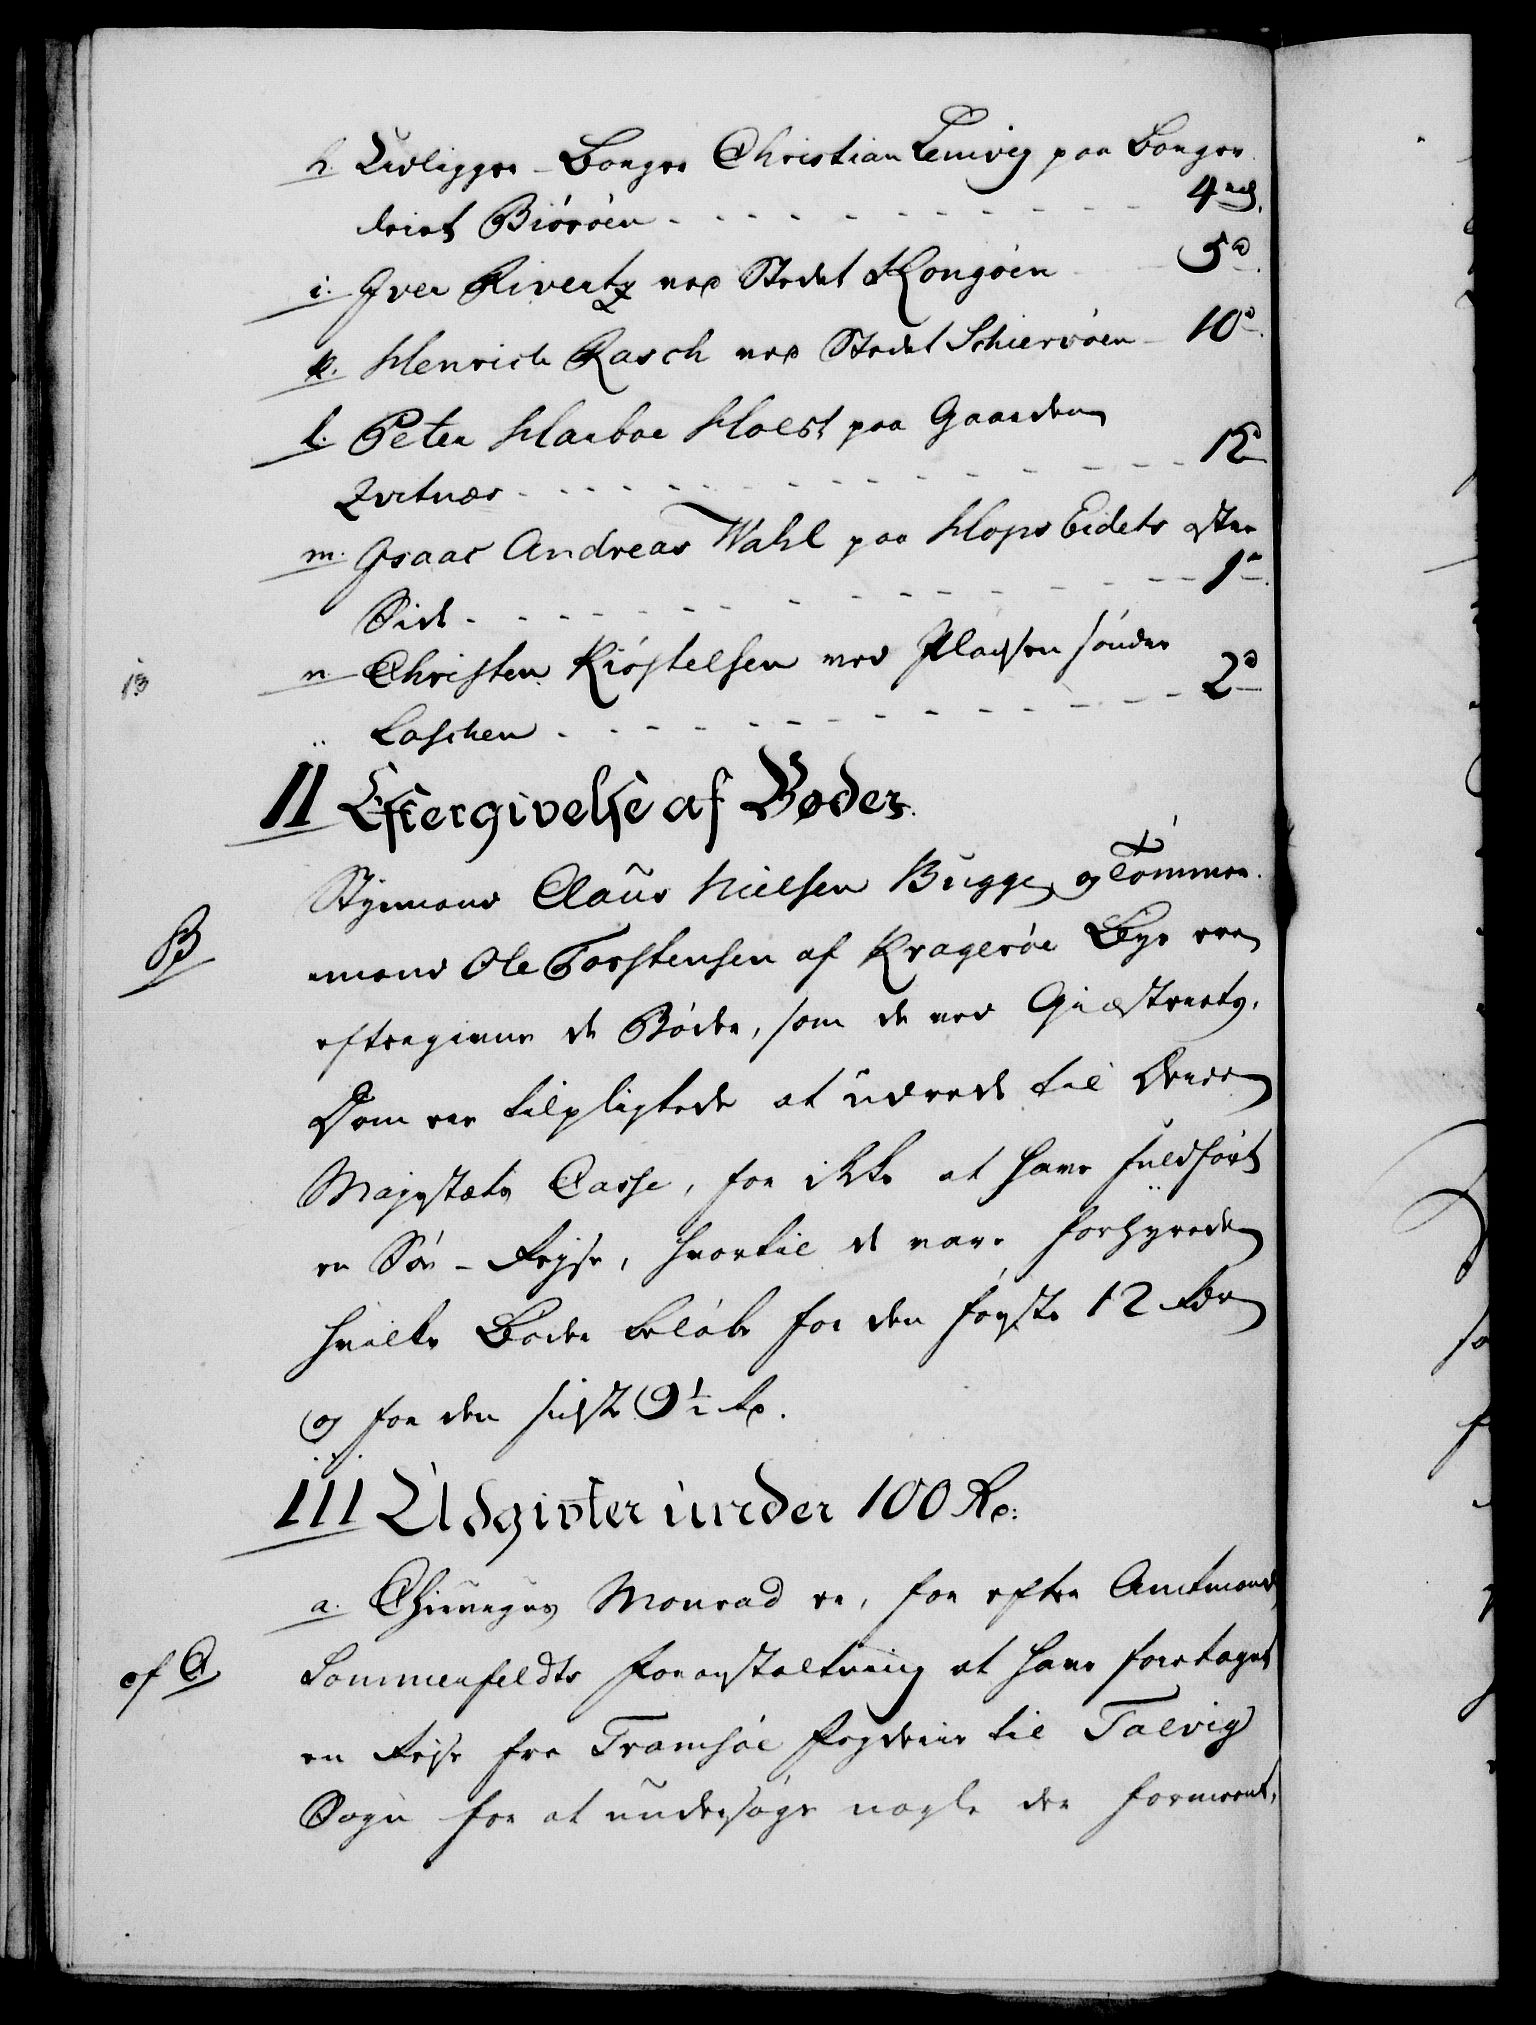 h. Udligger-Borger Christian Lemvig paa Borger
leiet Bióróen - - - - - 4 rd.
i. Iver Rivertz ved Stedet Kongóen - 5 d.
k. Henrich Rasch ved Stedet Schiervóen - 10 d.
l. Peter Harboe Holst paa Gaarden
Qvitnæs - - - - - 12
m. Isaac Andreas Wahl paa Hops Eidets østre
Side - - - - - 1 d.
n. Christen Kióstelsen ved Pladsen sóndre
13
Laschen - - - - - 2 d.
II Eftergivelse af Bøder.
Styrmand Claus Nielsen Bugge og Tómmer-
B
mand Ole Torstensen af Krageróe Bye ere
eftergivne de Bóder, som de ved Giæsterets-
Dom ere tilpligtede at udrede til Deres
Majestæts Casse, for ikke at have fuldfórt
en Sóe-Rejse, hvortil de vare forhyrede
hvilke Bóder belóbe for den fórste 12 Rdr
og for den sidste 9½ Rd.
III Udgivter under 100 Rd:
a. Chirurgus Monrad er, for efter Amtmand
af C
Sommerfeldts Foranstaltning at have foretaget
en Rejse fra Tromsóe Fogderie til Talvig
Sogn for at undersóge nogle der formeent,